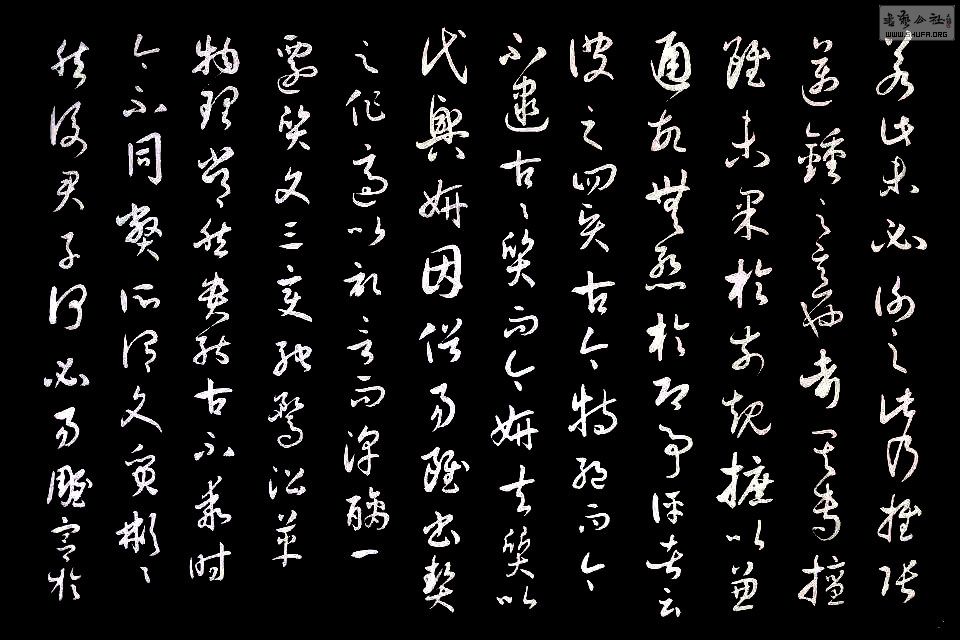 若此未必謝之此乃推張
邁鍾之意也考其專擅
雖未果於前規摭以兼
通故無慚於即事評者云
彼之四賢古今特絕而今
不逮古〻質而今妍夫質以
代興妍因俗易雖書契
之作適以記言而淳醨一
遷質文三變馳騖沿革
物理常然貴能古不乖時
今不同弊所謂文質彬〻
然後君子何必易雕宮於
書藝公社
WWW.SHUFA.ORG